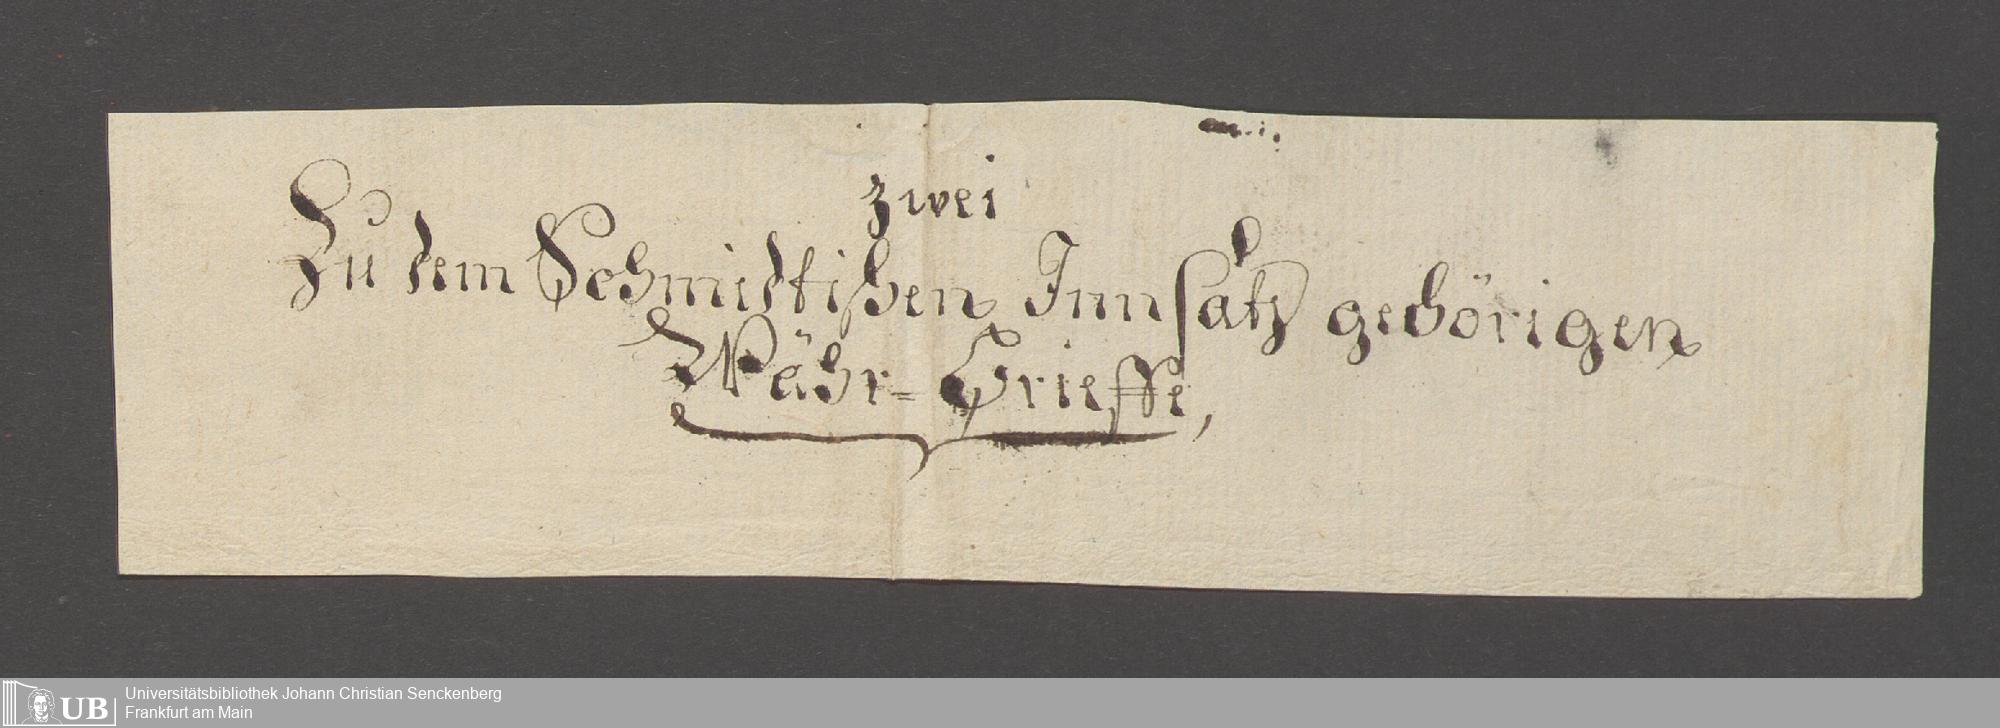 zwei
Zu dem Schmidtischen Innsatz gehörigen
Währ-Brieffe,
UB
Universitätsbibliothek Johann Christian Senckenberg
Frankfurt am Main